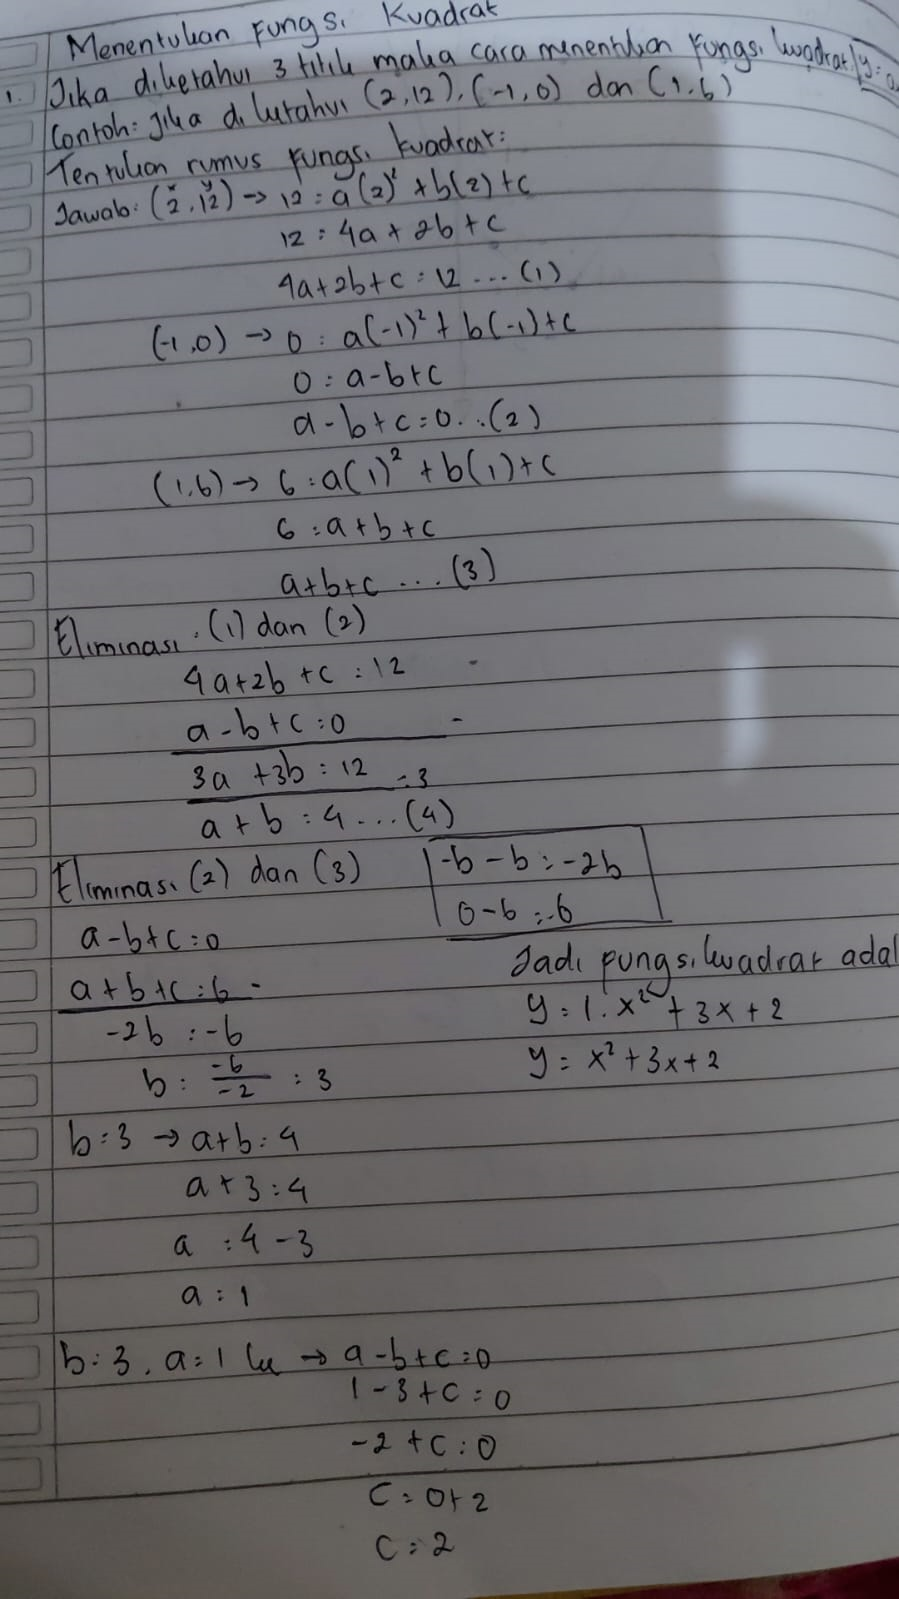 Menentukan Fungsi Kuadrat
1. Jika diketahui 3 titik maka cara menentukan Fungsi kuadrat y =
Contoh: Jika diketahui (2,12), (-1,0) dan (1,6)
Tentukan rumus Fungsi kuadrat:
Jawab: (2,12) → 12 = a(2)² + b(2) + c
x y
12 = 4a + 2b + c
4a + 2b + c = 12 ... (1)
(-1,0) → 0 = a(-1)² + b(-1) + c
0 = a - b + c
a - b + c = 0 ... (2)
(1,6) → 6 = a(1)² + b(1) + c
6 = a + b + c
a + b + c ... (3)
Eliminasi (1) dan (2)
4a + 2b + c = 12
a - b + c = 0 -
3a + 3b = 12 : 3
a + b = 4 ... (4)
Eliminasi (2) dan (3)
a - b + c = 0
a + b + c = 6 -
-2b = -6
b = -6/-2 = 3
-b - b = -2b
0 - 6 = -6
Jadi fungsi kuadrat adal
y = 1. x² + 3x + 2
y = x² + 3x + 2
b = 3 → a + b = 4
a + 3 = 4
a = 4 - 3
a = 1
b = 3, a = 1 ke → a - b + c = 0
1 - 3 + c = 0
-2 + c = 0
c = 0 + 2
c = 2